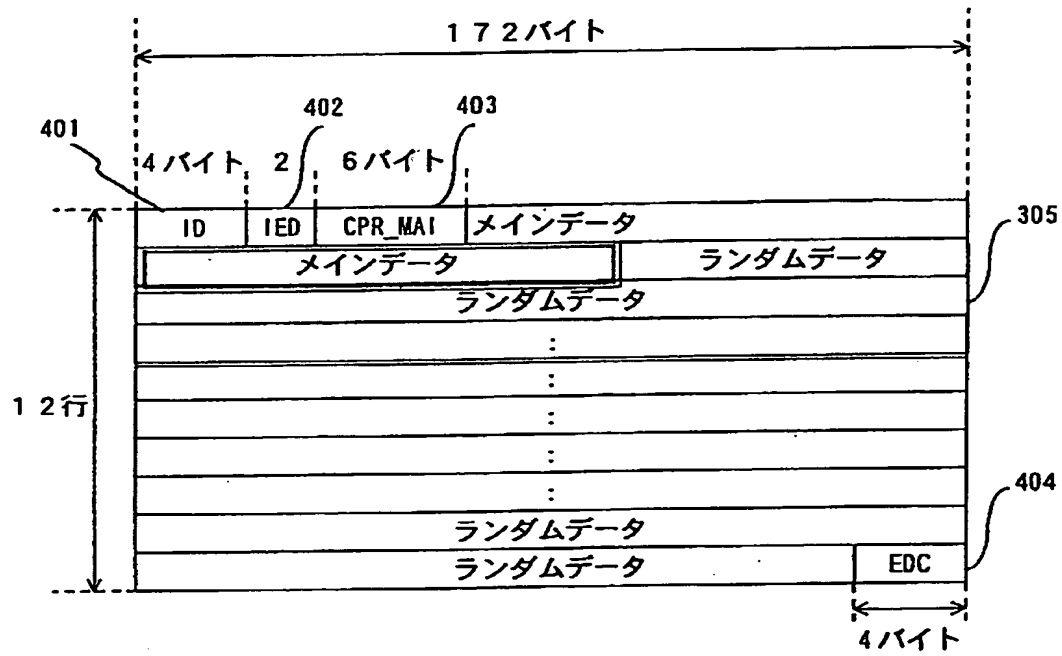 172バイト
401
402
403
4バイト 2 6バイト
ID IED CPR_MAI メインデータ
305
メインデータ ランダムデータ
ランダムデータ
:
:
12行
:
:
:
404
ランダムデータ
ランダムデータ EDC
4バイト